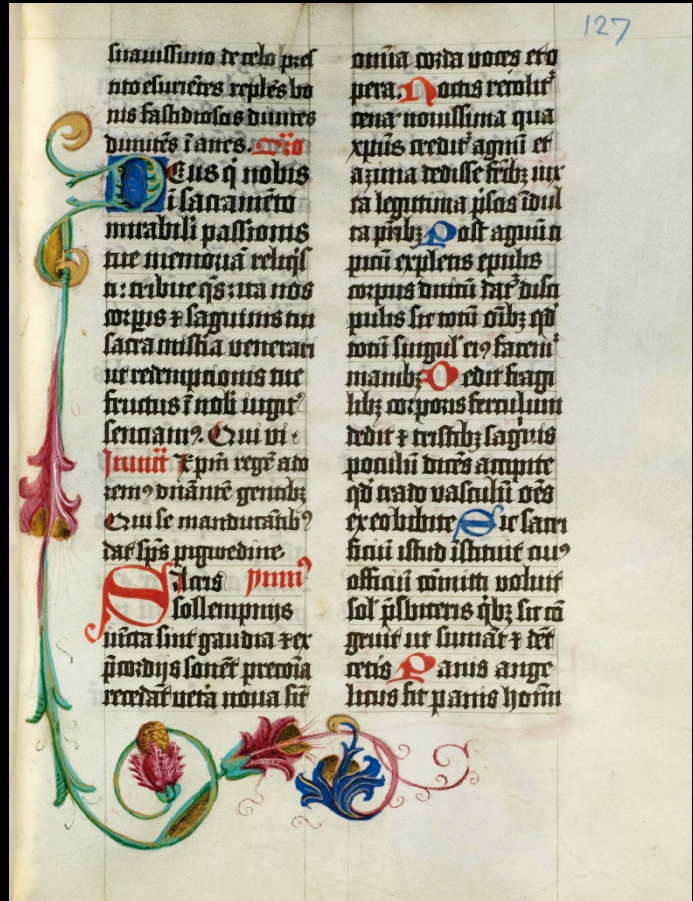 127
suauissimo de celo pres
tito esuriētes replēs bo
nis fastidiosos diuites
dimittēs īanes. Oro
Deus q̄ nobis
ī sacramēto
mirabili passionis
tue memoriā reliqs
ti: tribue q̄s: ita nos
corpis ⁊ sāguinis tui
sacra mistīa venerari
ut redemptionis tue
fructus ī nobˢ iugitʳ
senciamꝰ. Qui vi
Inuitᵗ Xpm̄ regē ado
remꝰ dn̄antē gentibꝫ
Qui se manducātibꝰ
dat sp̄s pigwedine
Sacris ymnꝰ
sollempnijs
iūcta sint gaudia ⁊ ex
p̄cordijs sonēt preconia
recedāt uetā noua sīt
omīa corda uoces et o
pera. Noctis recolitʳ
cena nouissima qua
xpūs creditʳ agnū et
azima dedisse fr̄ibꝫ iux
ta legittima p̄scis īdul
ta pr̄ibꝫ Post agnū ti
picū expletis epulis
corpus dn̄icū datʳ disci
pulis sic totū oībꝫ qd̄
totū singulˢ eiꝰ fatemʳ
manibꝫ Dedit fragi
libꝫ corporis ferculum
dedit ⁊ tristibꝫ sāgīs
poculū dicēs accipite
qd̄ trado vasculū oēs
ex eo bibite Sic sacri
ficiū istud īstituit cuiꝰ
officiū cōmitti voluit
solˢ p̄sbiteris q̄bꝫ sic cō
gruit ut sumāt ⁊ dēt
ceteris Panis ange
licus fit panis homī